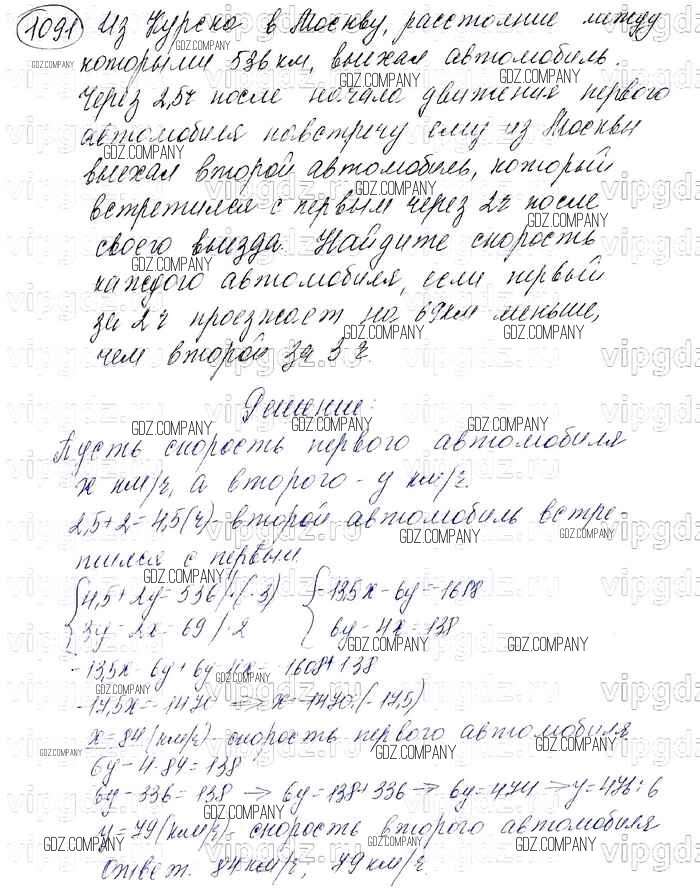 1091 Из Курска в Москву, расстояние между
которыми 536 км, выехал автомобиль.
Через 2,5 ч после начала движения первого
автомобиля навстречу ему из Москвы
выехал второй автомобиль, который
встретился с первым через 2 ч после
своего выезда. Найдите скорость
каждого автомобиля, если первый
за 2 ч проезжает на 69 км меньше,
чем второй за 3 ч.
Решение:
Пусть скорость первого автомобиля
x км/ч, а второго - y км/ч.
2,5 + 2 = 4,5 (ч) - второй автомобиль встре-
тился с первым.
4,5 + 2y = 536 | · (-3) -13,5x - 6y = -1608
3y - 2x = 69 | · 2 6y - 4x = 138
-13,5x - 6y + 6y - 4x = -1608 + 138
-17,5x = -1470 => x = -1470 : (-17,5)
x = 84 (км/ч) - скорость первого автомобиля
6y - 4 · 84 = 138
6y - 336 = 138 -> 6y = 138 + 336 -> 6y = 474 -> y = 474 : 6
y = 79 (км/ч) - скорость второго автомобиля
Ответ. 84 км/ч, 79 км/ч.
GDZ.COMPANY
vipgdz.ru